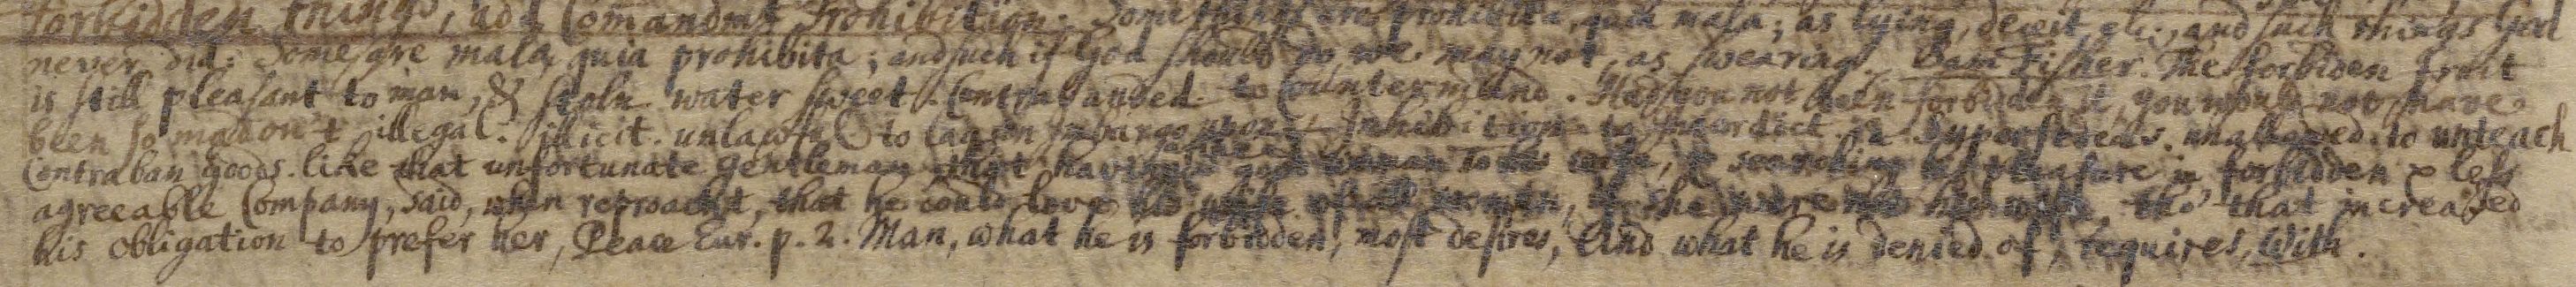 forbidden things, ad d Comandmt Prohibition. Some things are prohibita, quia mala; as lying, deceit, etc., and such things God
never did: Some are mala, quia prohibita; and such if God should do we may not, as swearing. Sam Fisher. The forbiden fruit
is still pleasant to man, & stoln water sweet. Contrabanded. to Countermand. Had you not been forbidden it, you would not have
been so mad on't illegal. illicit. unlawful to lay an Imbargo upon. Inhibition to Interdict. a Supersedeas. unallowed. to unteach
Contraban goods. like that unfortunate gentleman, that having a good woman to his wife, & searching his pleasure in forbidden & less
agreeable Company, said, when reproacht, that he could love his wife of all women, if she were not his wife, tho' that increased
his obligation to prefer her, Peace Eur. p. 2. Man, what he is forbidden, most desires, And what he is denied of, requires, With.